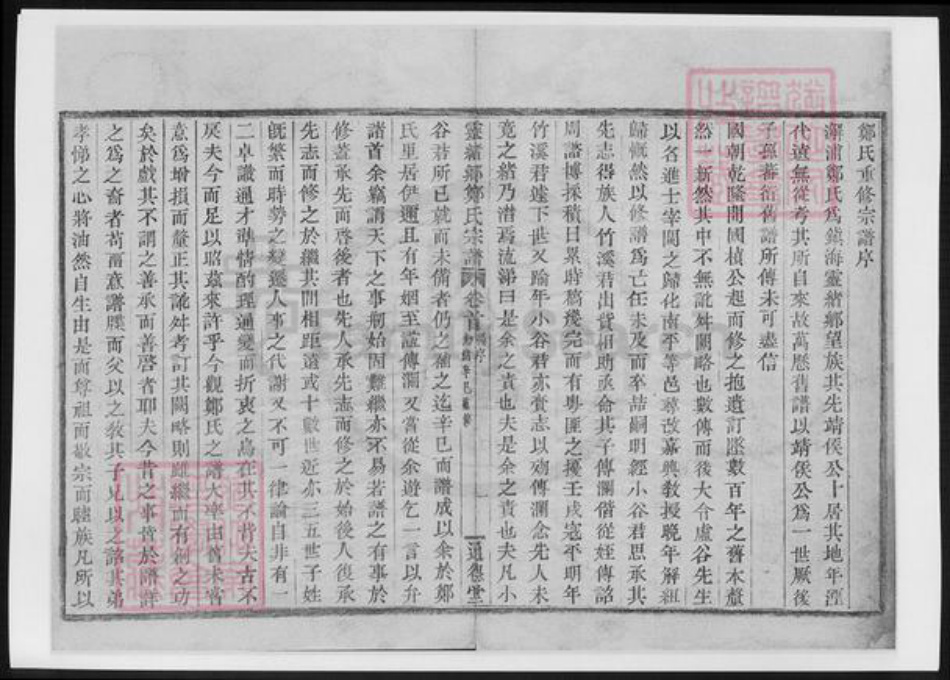 鄭氏重修宗譜序
澥浦鄭氏為鎮海靈緒鄉望族其先靖侯公卜居其地年湮
代遠無從考其所自來故萬曆舊譜以靖侯公為一世厥後
子孫蕃衍舊譜所傳未可盡信
國朝乾隆間國楨公起而修之抱遺訂墜數百年之舊本釐
然一新然其中不無訛舛闕略也數傳而後大令虛谷先生
以名進士宰閩之歸化南平等邑尋改嘉興教授晚年解組
歸慨然以修譜為己任未及而卒喆嗣明經小谷君思承其
先志得族人竹溪君出貲相助承命其子傳瀾偕從姪傳詒
周諮博採積日累時稿幾完而有粵匪之擾壬戌寇平明年
竹溪君遽下世又踰年小谷君亦賫志以殁傳瀾念先人未
竟之緒乃潸焉流涕曰是余之責也夫是余之責也夫凡小
靈緒鄉鄭氏宗譜 卷首 序 光緒辛巳重修 一 通德堂
谷君所已就而未備者仍之補之迄辛巳而譜成以余於鄭
氏里居伊邇且有年姻至誼傳瀾又嘗從余遊乞一言以弁
諸首余竊謂天下之事刱始固難繼亦不易若譜之有事於
修蓋承先而啓後者也先人承先志而修之於始後人復承
先志而修之於繼其間相距遠或十數世近亦三五世子姓
既繁而時勢之變遷人事之代謝又不可一律論自非有一
二卓識通才準情酌理通變而折衷之烏在其不背夫古不
戾夫今而足以昭茲來許乎今觀鄭氏之譜大率由舊未嘗
意為增損而釐正其訛舛考訂其闕略則雖繼而有創之功
矣於戲其不謂之善承而善啓者耶夫今昔之事皆於譜詳
之為之裔者苟甯意譜牒而父以之教其子兄以之詔其弟
孝悌之心將油然自生由是而尊祖而敬宗而睦族凡所以